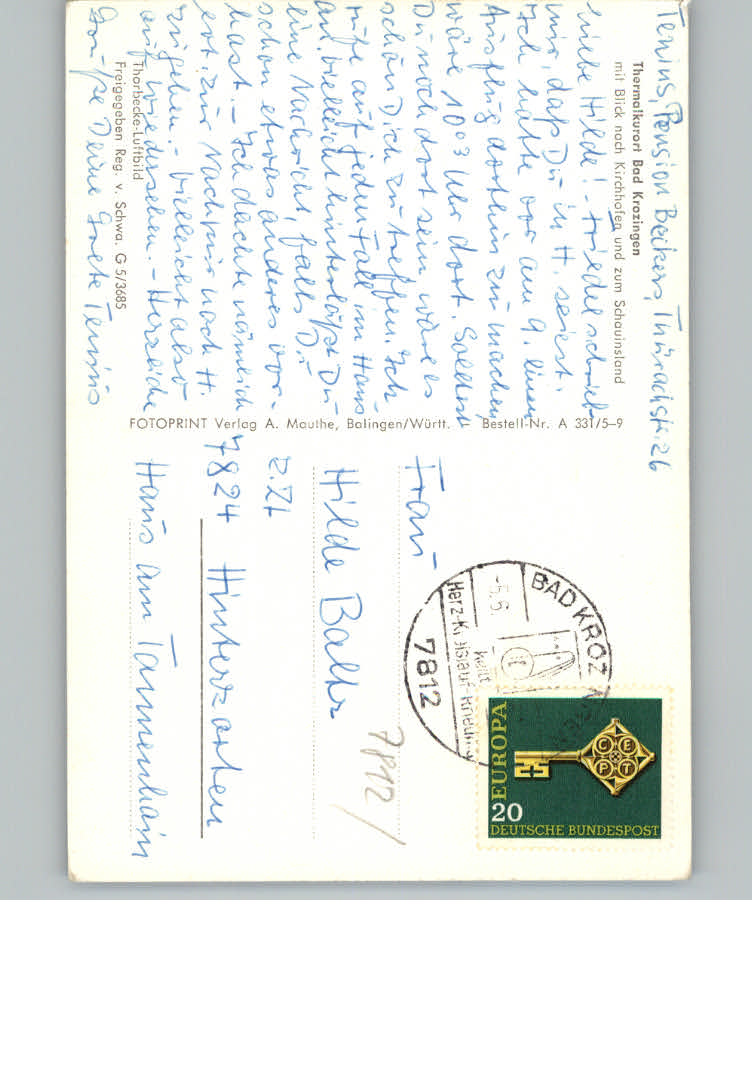 Tenius, Pension Beckers, Thürachstr. 26
Thermalkurort Bad Krozingen
mit Blick nach Kirchhofen und zum Schauinsland
Liebe Hilde! - Friedel schrieb
mir, daß Du in H. seiest.
Ich hätte vor am 9. einen
Ausflug dorthin zu machen,
wäre 10⁰³ Uhr dort. Solltest
Du noch dort sein, wäre es
schön Dich zu treffen. Ich
rufe auf jeden Fall im Haus
an. Vielleicht hinterläßt Du
eine Nachricht, falls Du
schon etwas anderes vor-
hast. - Ich dachte nämlich
evt. zur Nachkur nach H.
zu gehen. - Vielleicht also
auf Wiedersehen. - Herzliche
Grüße Deine Grete Tenius
Thorbecke-Luftbild
Freigegeben Reg. v. Schwa. G 5/3685
FOTOPRINT Verlag A. Mauthe, Balingen/Württ. Bestell-Nr. A 331/5-9
Frau
Hilde Balts
z. Zt
7824 Hinterzarten
Haus am Tannenhain
7812/
BAD KROZINGEN
7812
heilt
EUROPA
CEPT
20
DEUTSCHE BUNDESPOST